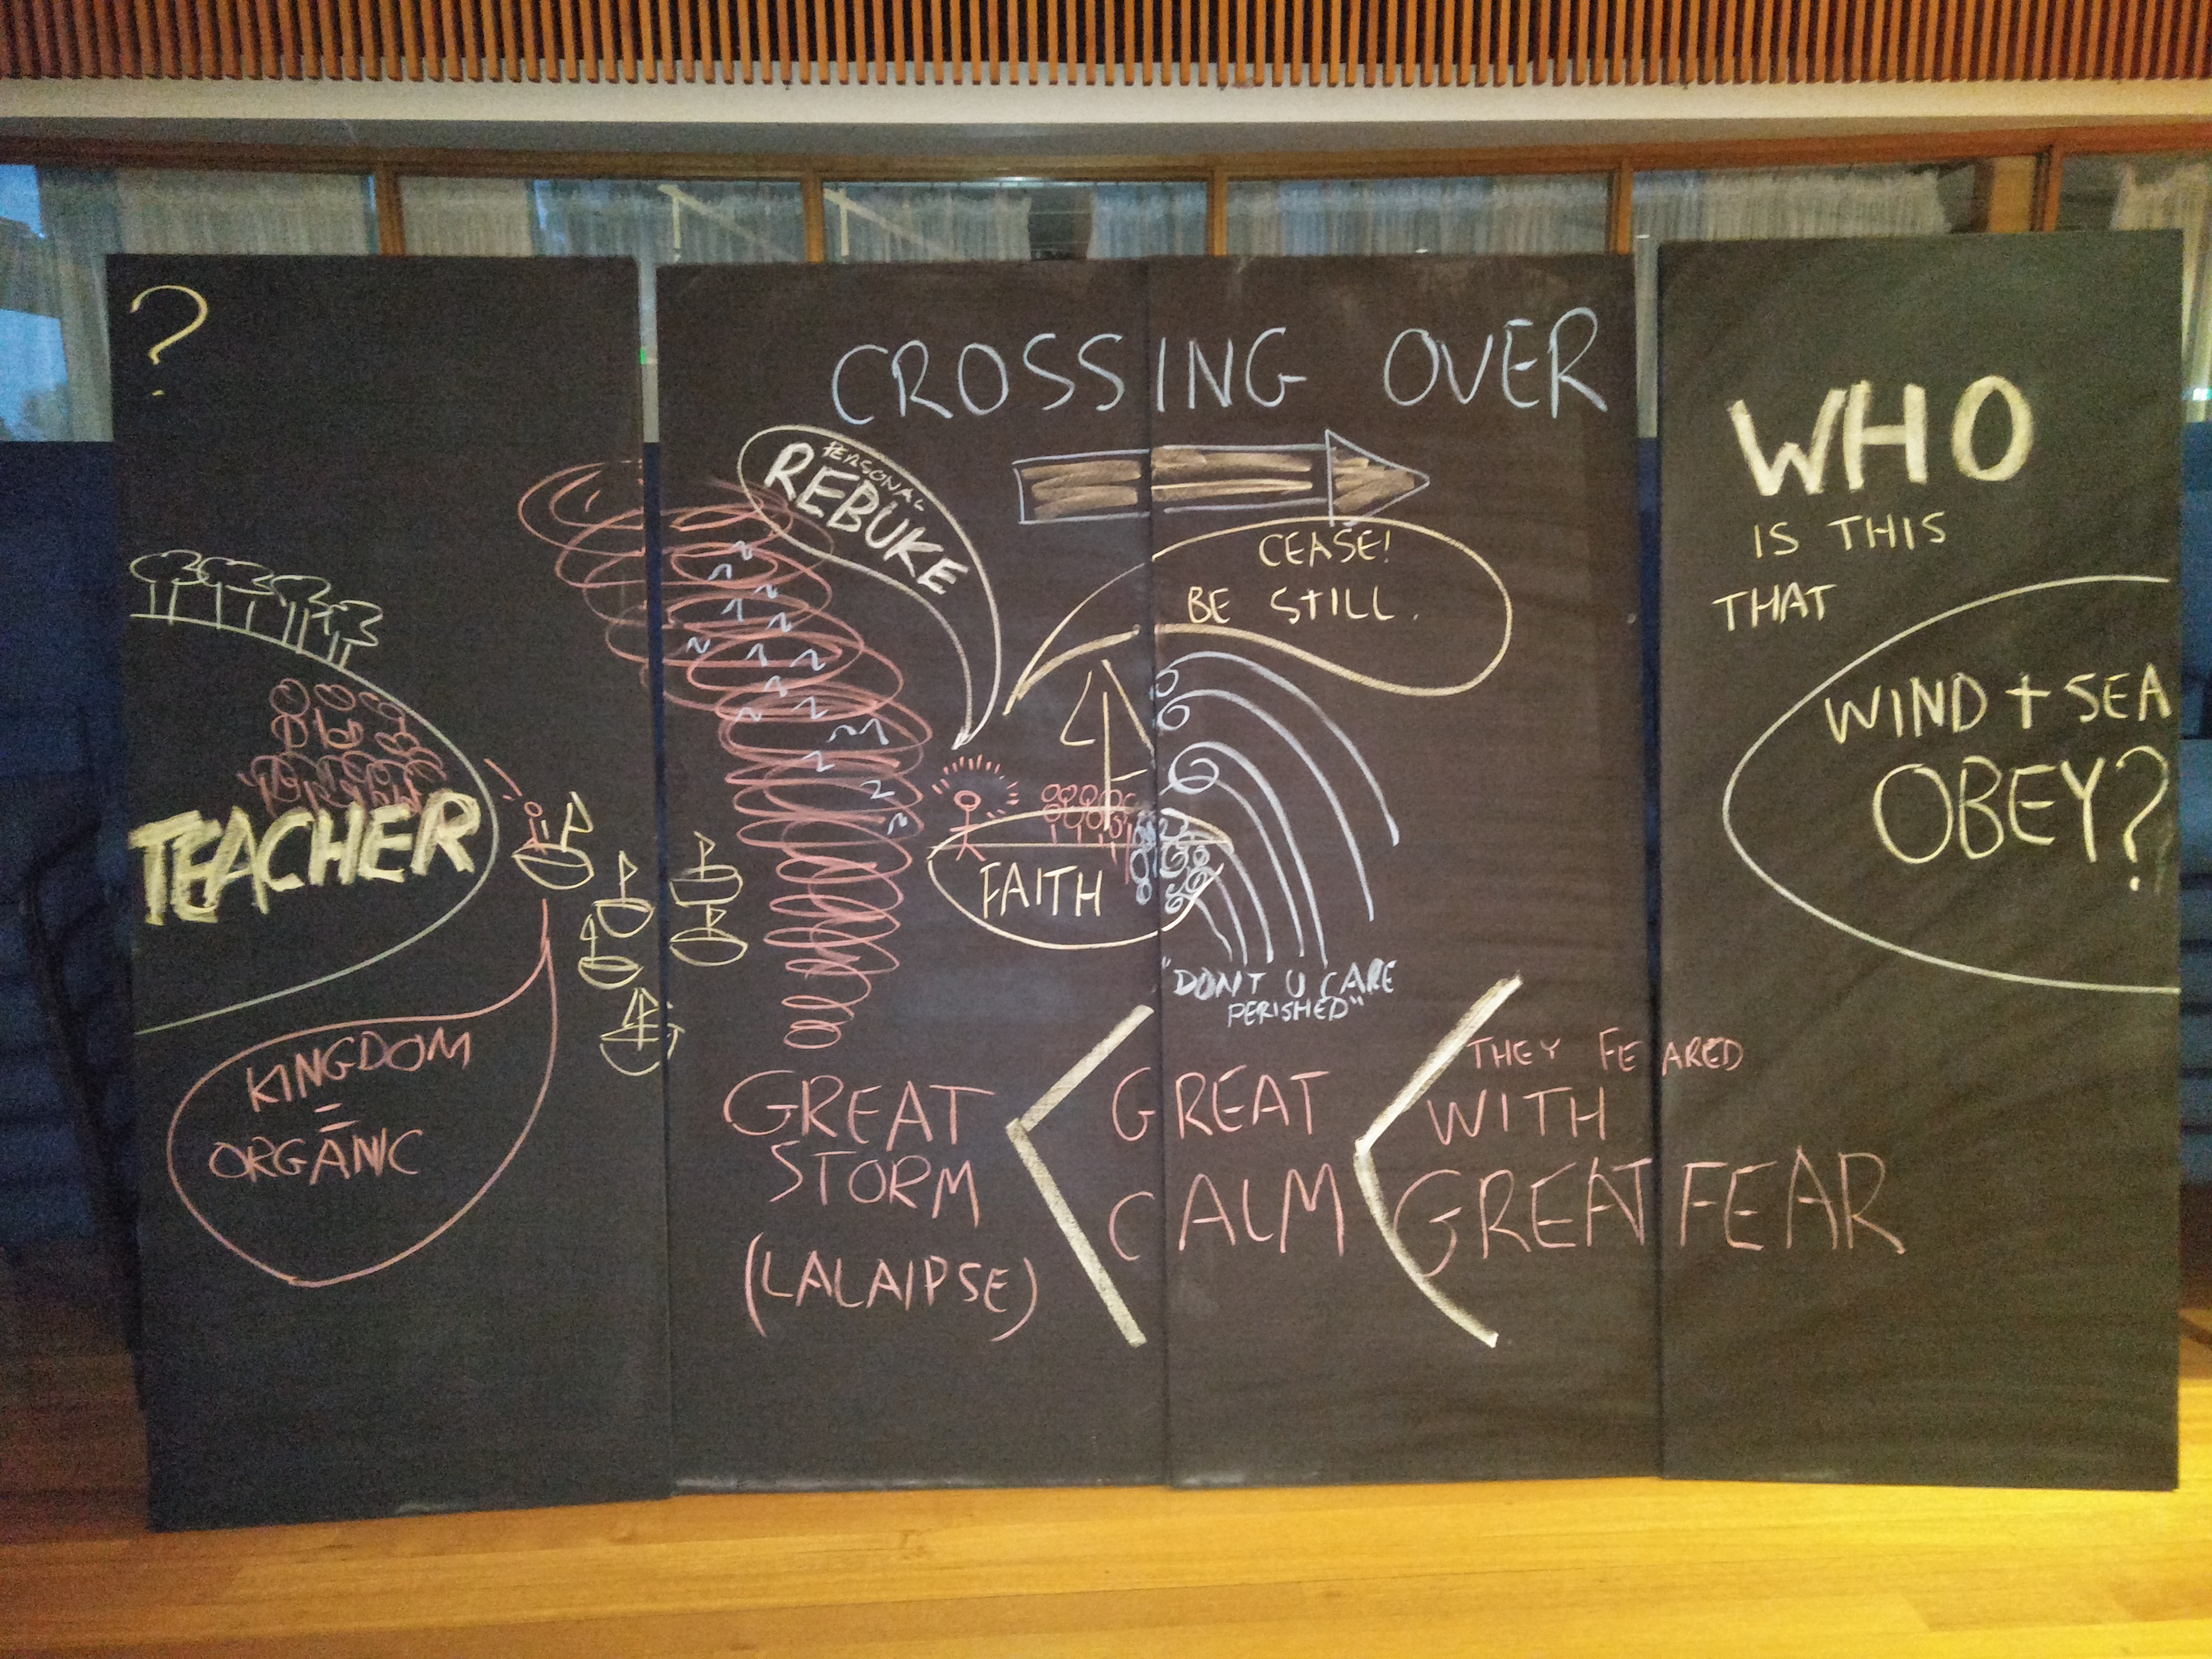 ?
CROSSING OVER
PERSONAL
REBUKE
CEASE!
BE STILL.
WHO
IS THIS
THAT
WIND + SEA
OBEY?
TEACHER
FAITH
"DONT U CARE
PERISHED"
KINGDOM
=
ORGANIC
GREAT
STORM
(LALAIPSE)
<
GREAT
CALM
<
THEY FEARED
WITH
GREAT FEAR